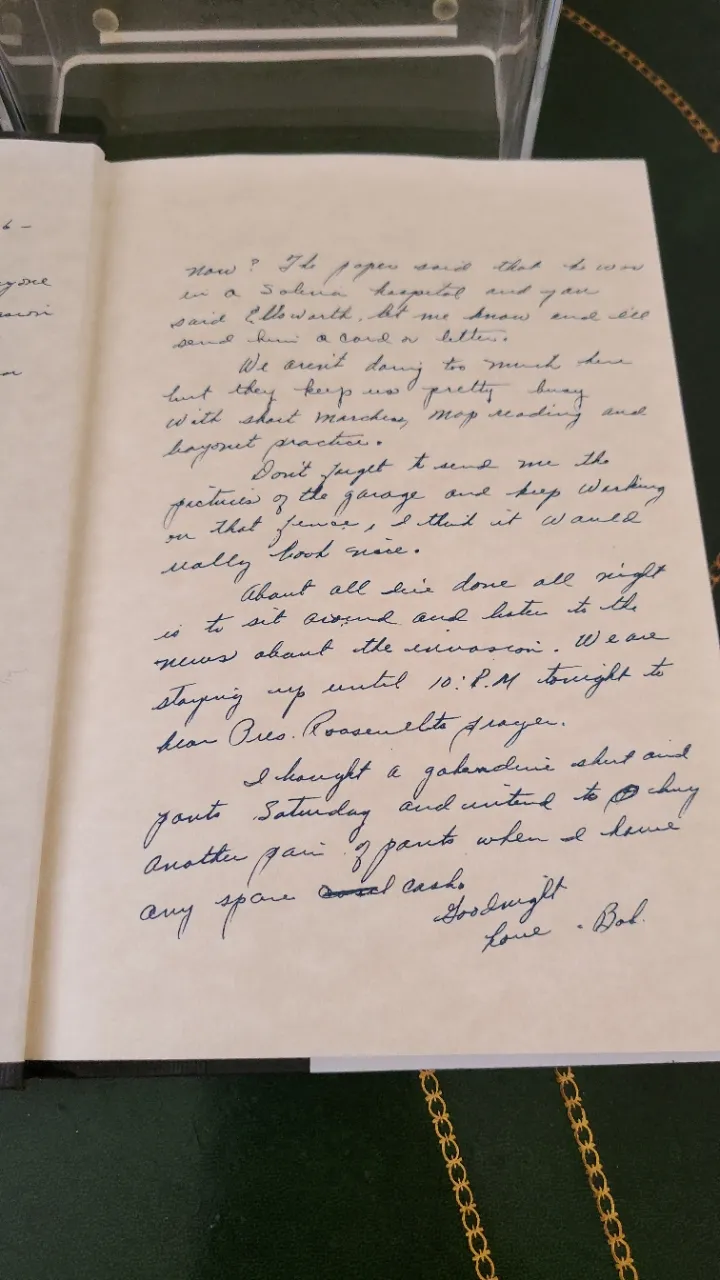 6 -
now? The paper said that he was
in a Salina hospital and you
said Ellsworth, let me know and I'll
send him a card or letter.
We aren't doing too much here
but they keep us pretty busy
with short marches, map reading and
bayonet practice.
Don't forget to send me the
pictures of the garage and keep working
on that fence, I think it would
really look nice.
About all I've done all night
is to sit around and listen to the
news about the invasion. We are
staying up until 10:P.M tonight to
hear Pres. Roosevelts prayer.
I bought a gabardine shirt and
pants Saturday and intend to buy
another pair of pants when I have
any spare cash.
Goodnight
Love - Bob.